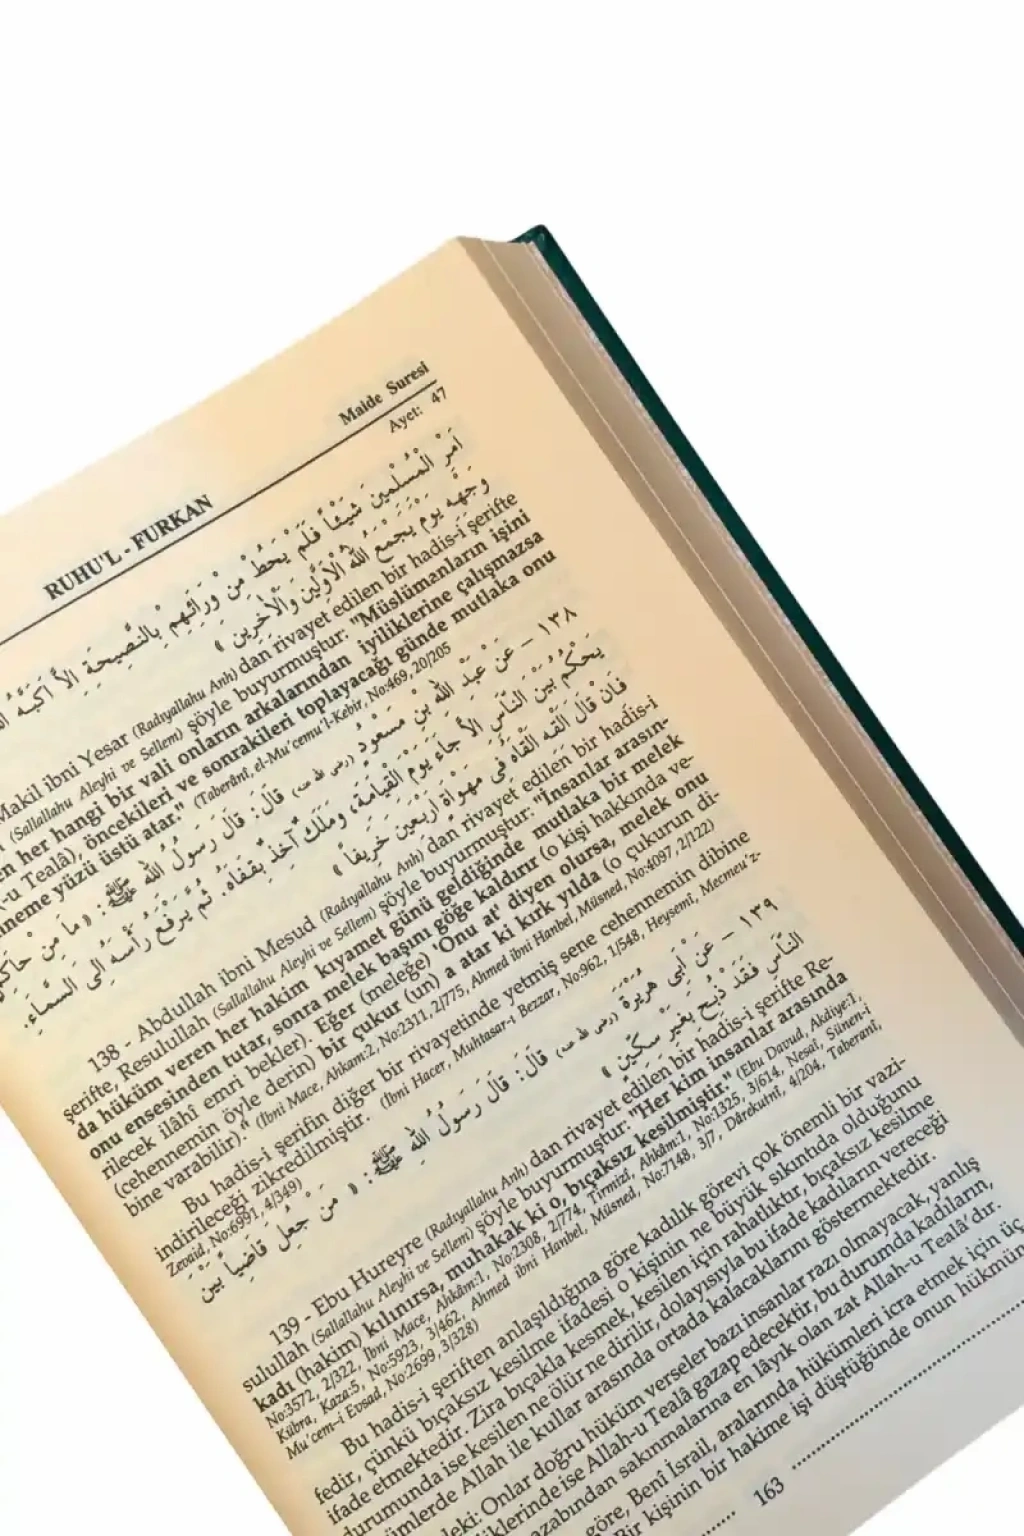 RUHU'L - FURKAN
Maide Suresi
Ayet: 47
اَمْرِ الْمُسْلِمِينَ شَيْئاً فَلَمْ يَحُطْ مِنْ وَرَائِهِمْ بِالنَّصِيحَةِ اِلاَّ اَكَبَّهُ
وَجْهِهِ يَوْمَ يَجْمَعُ اللهُ الْاَوَّلِينَ وَالْاٰخِرِينَ »
Makil ibni Yesar (Radıyallahu Anh) dan rivayet edilen bir hadis-i şerifte
(Sallallahu Aleyhi ve Sellem) şöyle buyurmuştur: "Müslümanların işini
her hangi bir vali onların arkalarından iyiliklerine çalışmazsa
Teala), öncekileri ve sonrakileri toplayacağı günde mutlaka onu
yüzü üstü atar." (Taberânî, el-Mu'cemu'l-Kebir, No:469, 20/205
١٣٨ – عَنْ عَبْدِ اللهِ بْنِ مَسْعُودٍ (رضي الله عنه) قَالَ: قَالَ رَسُولُ اللهِ ﷺ: « مَا مِنْ حَاكِمٍ
يَحْكُمُ بَيْنَ النَّاسِ اِلاَّ جَاءَ يَوْمَ الْقِيَامَةِ، وَمَلَكٌ آخِذٌ بِقَفَاهُ. ثُمَّ يَرْفَعُ رَأْسَهُ اِلَى السَّمَاءِ.
فَاِنْ قَالَ اَلْقِهِ اَلْقَاهُ فِى مَهْوَاةٍ اَرْبَعِينَ خَرِيفاً »
138 - Abdullah ibni Mesud (Radıyallahu Anh) dan rivayet edilen bir hadis-i
şerifte, Resulullah (Sallallahu Aleyhi ve Sellem) şöyle buyurmuştur: "İnsanlar arasın-
da hüküm veren her hakim kıyamet günü geldiğinde mutlaka bir melek
onu ensesinden tutar, sonra melek başını göğe kaldırır (o kişi hakkında ve-
rilecek ilâhî emri bekler). Eğer (meleğe) 'Onu at' diyen olursa, melek onu
(cehennemin öyle derin) bir çukur (un) a atar ki kırk yılda (o çukurun di-
bine varabilir)." (İbni Mace, Ahkam:2, No:2311, 2/775, Ahmed ibni Hanbel, Müsned, No:4097, 2/122)
Bu hadis-i şerifin diğer bir rivayetinde yetmiş sene cehennemin dibine
indirileceği zikredilmiştir. (İbni Hacer, Muhtasar-ı Bezzar, No:962, 1/548, Heysemî, Mecmeu'z-
Zevaid, No:6991, 4/349)
١٣٩ – عَنْ اَبِى هُرَيْرَةَ (رضي الله عنه) قَالَ: قَالَ رَسُولُ اللهِ ﷺ: « مَنْ جُعِلَ قَاضِياً بَيْنَ
النَّاسِ فَقَدْ ذُبِحَ بِغَيْرِ سِكِّينٍ »
139 - Ebu Hureyre (Radıyallahu Anh) dan rivayet edilen bir hadis-i şerifte Re-
sulullah (Sallallahu Aleyhi ve Sellem) şöyle buyurmuştur: "Her kim insanlar arasında
kadı (hakim) kılınırsa, muhakak ki o, bıçaksız kesilmiştir." (Ebu Davud, Akdiye:1,
No:3572, 2/322, İbni Mace, Ahkâm:1, No:2308, 2/774, Tirmizî, Ahkâm:1, No:1325, 3/614, Nesaî, Sünen-i
Kübra, Kaza:5, No:5923, 3/462, Ahmed ibni Hanbel, Müsned, No:7148, 3/7, Dârekutnî, 4/204, Taberanî,
Mu'cem-i Evsad, No:2699, 3/328)
Bu hadis-i şeriften anlaşıldığına göre kadılık görevi çok önemli bir vazi-
fedir, çünkü bıçaksız kesilme ifadesi o kişinin ne büyük sıkıntıda olduğunu
ifade etmektedir. Zira bıçakla kesmek, kesilen için rahatlıktır, bıçaksız kesilme
durumunda ise kesilen ne ölür ne dirilir, dolayısıyla bu ifade kadıların vereceği
Allah ile kullar arasında ortada kalacaklarını göstermektedir.
Onlar doğru hüküm verseler bazı insanlar razı olmayacak, yanlış
ise Allah-u Teala gazap edecektir, bu durumda kadıların,
azabından sakınmalarına en lâyık olan zat Allah-u Teala'dır.
göre, Benî İsrail, aralarında hükümleri icra etmek için üç
Bir kişinin bir hakime işi düştüğünde onun hükmün
163